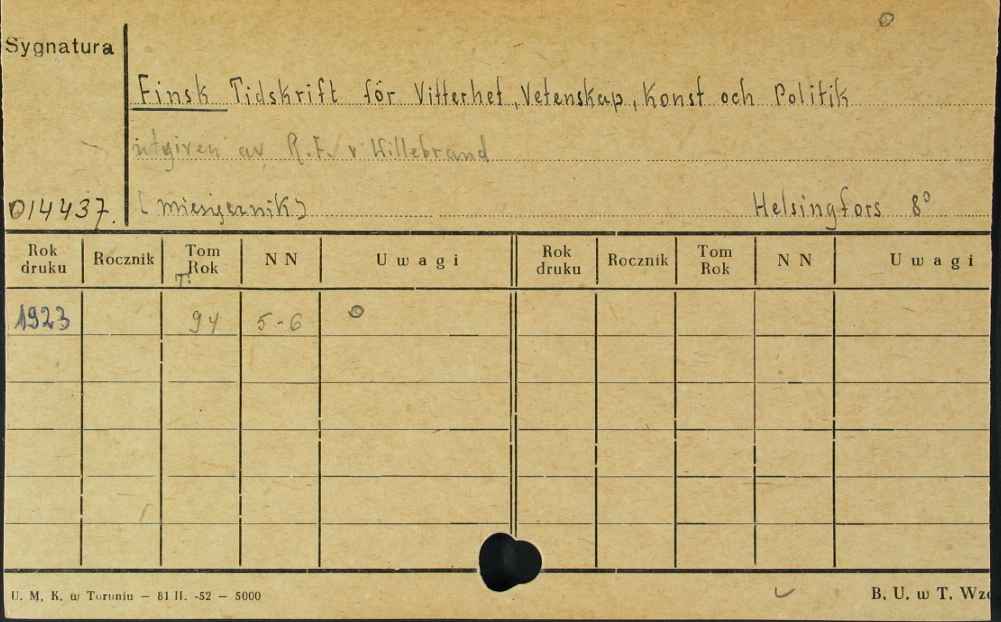 Sygnatura
Finsk Tidskrift för Vitterhet, Vetenskap, Konst och Politik
utgiven av R.F. v Willebrand
014437. [miesięcznik] Helsingfors 8°
Rok druku Rocznik Tom Rok N N Uwagi Rok druku Rocznik Tom Rok N N Uwagi
T.
1923 94 5-6 O
U. M. K. w Toruniu — 81 II. -52 — 5000 B. U. w T.